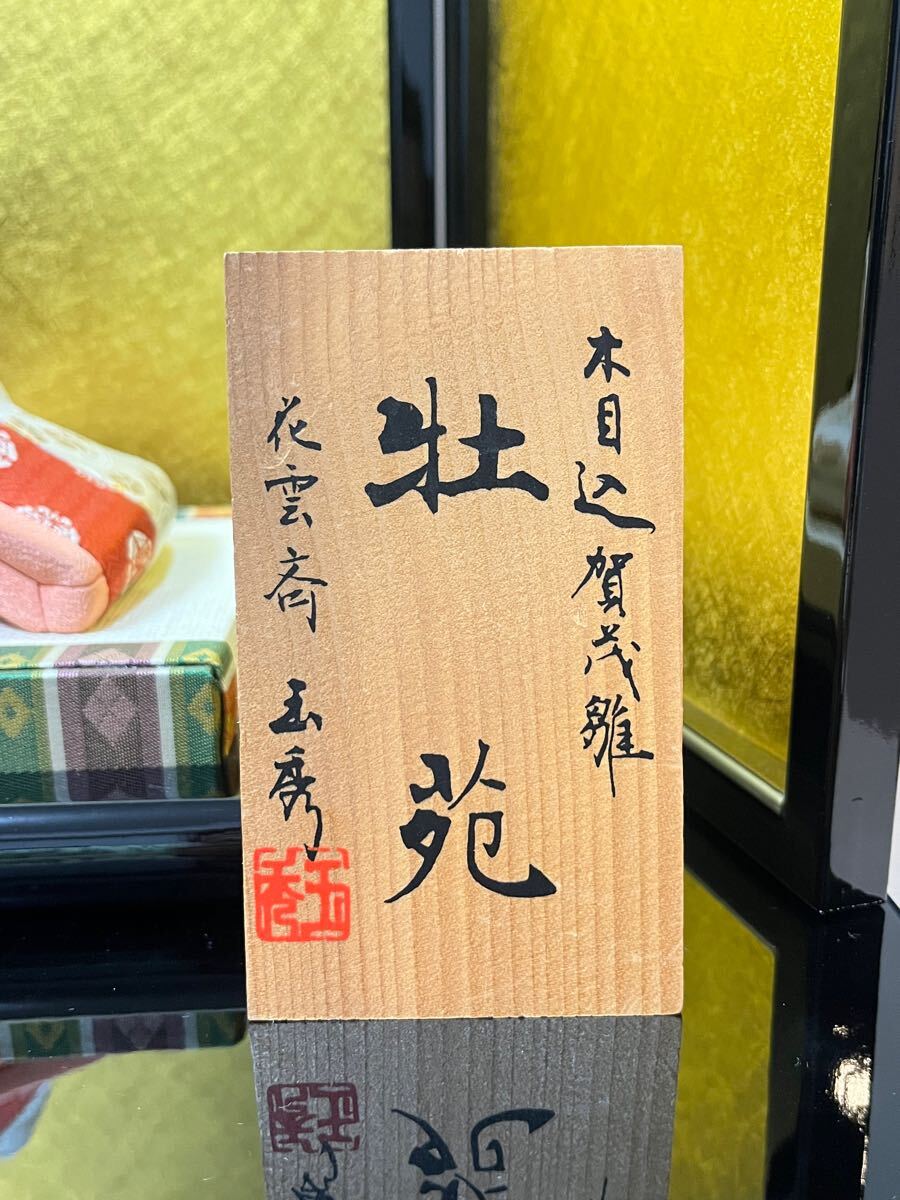 木目込賀茂雛
牡苑
花雲斎 玉秀
玉秀